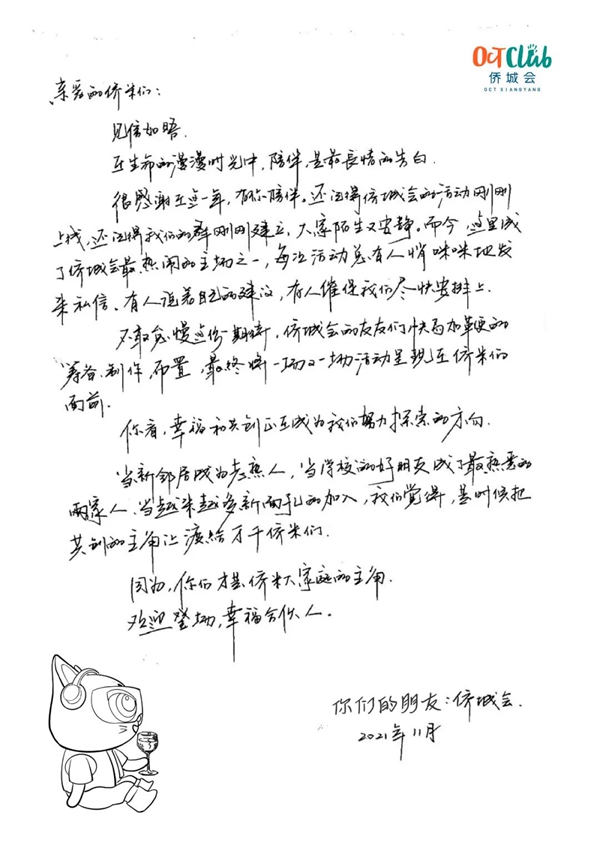 OCT Club
侨城会
OCT XIANGYANG
亲爱的侨米们：
见信如晤.
在生命的漫漫时光中，陪伴是最长情的告白.
很感谢在这一年，有你陪伴。还记得侨城会的活动刚刚
上线，还记得我们的群刚刚建立，大家陌生又安静。而今，这里成
了侨城会最热闹的主场之一，每次活动总有人悄咪咪地发
来私信、有人说着自己的建议，有人催促我们尽快安排上.
不敢怠慢这份期待，侨城会的友友们快马加鞭的
筹备、制作、布置，最终将一场又一场活动呈现在侨米们
面前.
你看，幸福和共创正在成为我们努力探索的方向.
当新邻居成为老熟人，当学校的好朋友成了最熟悉的
两家人、当越来越多新面孔的加入，我们觉得，是时候把
共创的主角让渡给万千侨米们.
因为，你们才是侨米大家庭的主角.
欢迎登场，幸福合伙人.
你们的朋友：侨城会.
2021年11月